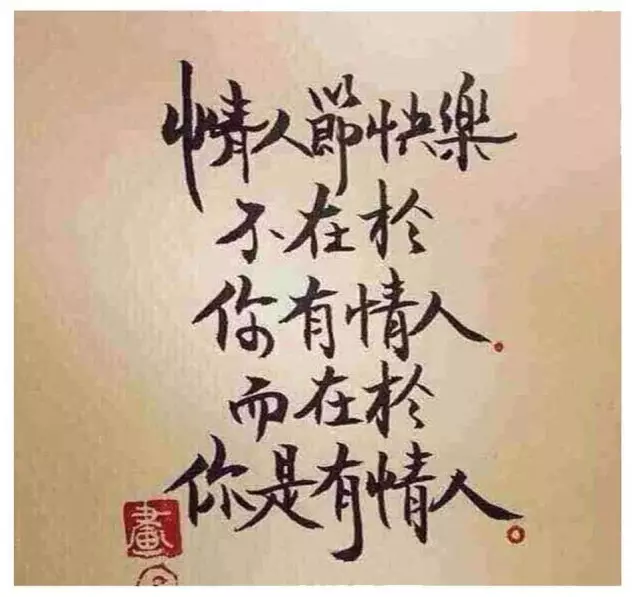 情人節快樂
不在於
你有情人。
而在於
你是有情人。
畫